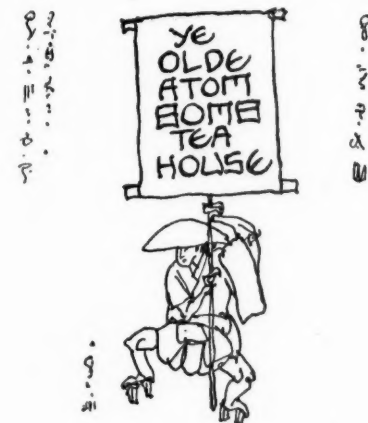 YE
OLDE
ATOM
BOMB
TEA
HOUSE